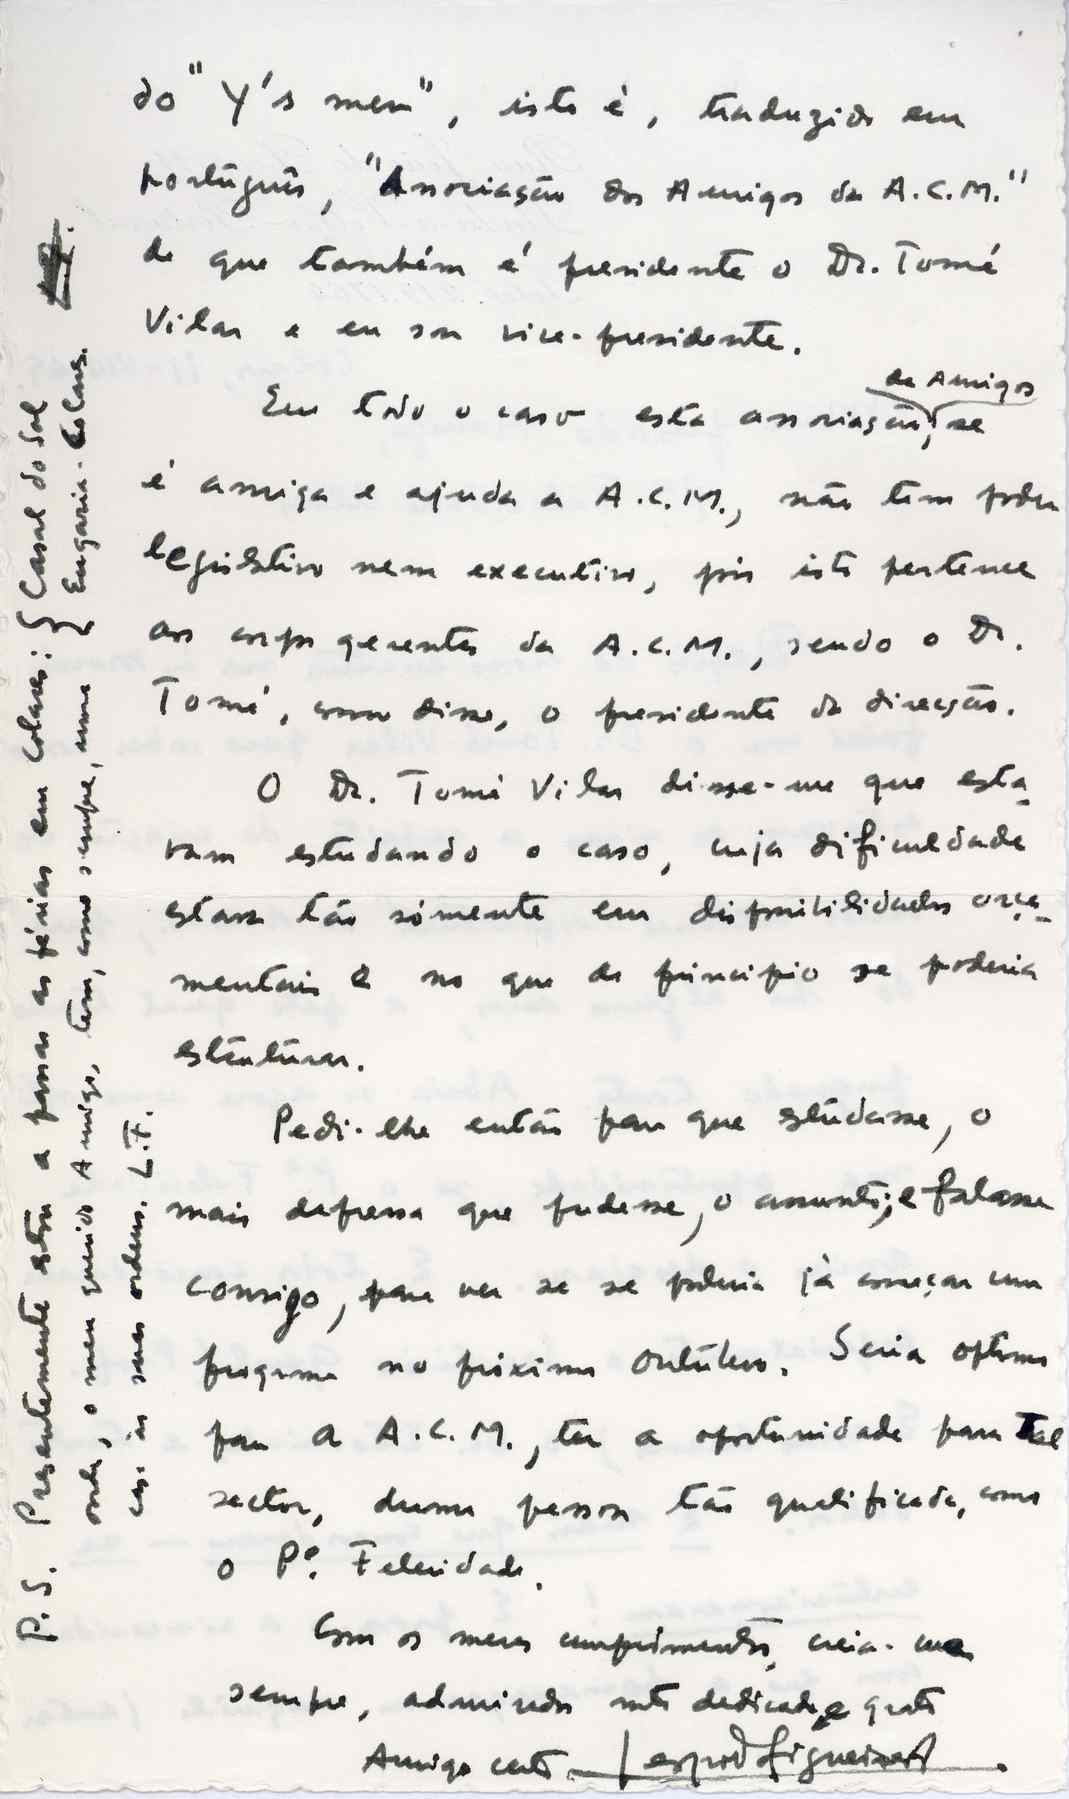 do "Y's men", isto é, traduzido em
português, "Associação dos Amigos da A.C.M."
de que também é presidente o Dr. Tomé
Vilar e eu sou vice-presidente.
de Amigos
Em todo o caso esta associação, se
é amiga e ajuda a A.C.M., não tem poder
legislativo nem executivo, pois isto pertence
aos corpos gerentes da A.C.M., sendo o Dr.
Tomé, como disse, o presidente da direcção.
O Dr. Tomé Vilar disse-me que esta-
vam estudando o caso, cuja dificuldade
estava tão sómente em disponibilidades orça-
mentais e no que de principio se poderia
estruturar.
Pedi-lhe então para que estudasse, o
mais depressa que pudesse, o assunto; e falasse
consigo, para ver se se poderia já começar um
programa no próximo Outubro. Seria optimo
para a A.C.M., ter a oportunidade para tal
sector, duma pessoa tão qualificada, como
o Pº. Felicidade.
Com os meus cumprimentos, creia-me
sempre, admirador mto dedicado e grato
Amigo certo
P.S. Presentemente estou a passar as férias em Colares: { Casal do Sol
Eugaria-Colares.
onde, o meu querido Amigo, tem, como sempre, uma
casa às suas ordens. L.F.